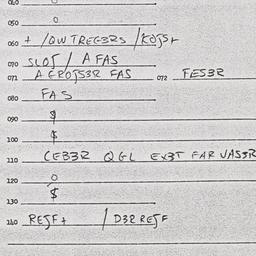 040
050 0
060 + /QWTREG3RS /KOJS+
070 SLOJ / A FAS
071 A GROJS3R FAS 072 FES3R
080 FA S
090 $
100 $
110 CEB3R QGL EX3T FAR VAS3R
120 0
130 $
140 REJF+ / D32 REJF